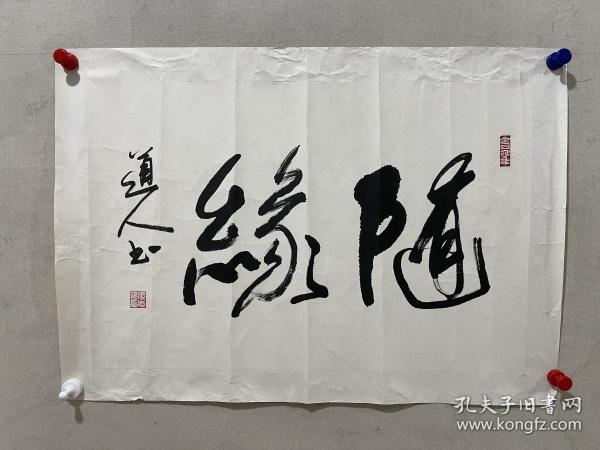 随緣
道人书
孔夫子旧书网
www.kongfz.com